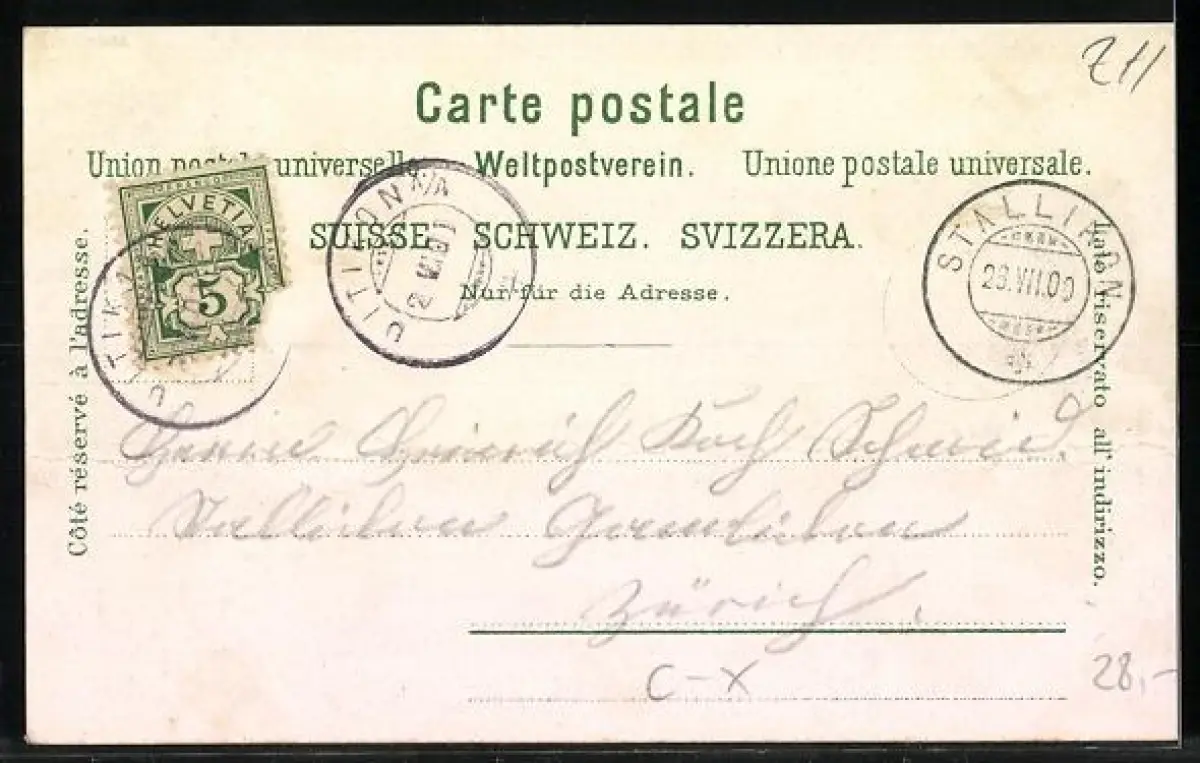 Z11
Carte postale
Union postale universelle. Weltpostverein. Unione postale universale.
SUISSE. SCHWEIZ. SVIZZERA.
Nur für die Adresse.
Côté réservé à l'adresse.
Lato riservato all' indirizzo.
FRANCO
HELVETIA
5
UITIKON
STALLIKON
29.VII.00
Herrn Heinrich Koch Schmied.
Zürich.
C-X
28,-